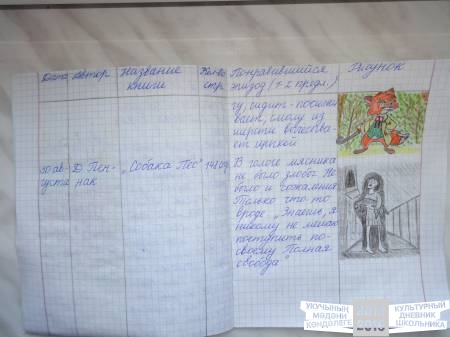 Дата Автор Название книги Кол-во стр. Понравившийся эпизод (1-2 предл.) Рисунок
гу, сидит-посижи
вает, смолу из
шерсти
ет щепкой
30 ав- Д. Пен- „Собака Пёс" 141
густа нак
В голосе мясника
не было злобы. Не
было и сожаления.
Только что-то
вроде „Знаешь, я
никому не мешаю
поступить по-
своему. Полная
свобода"
УКУЧЫНЫҢ
МӘДӘНИ
КӨНДӘЛЕГЕ
КУЛЬТУРНЫЙ
ДНЕВНИК
ШКОЛЬНИКА